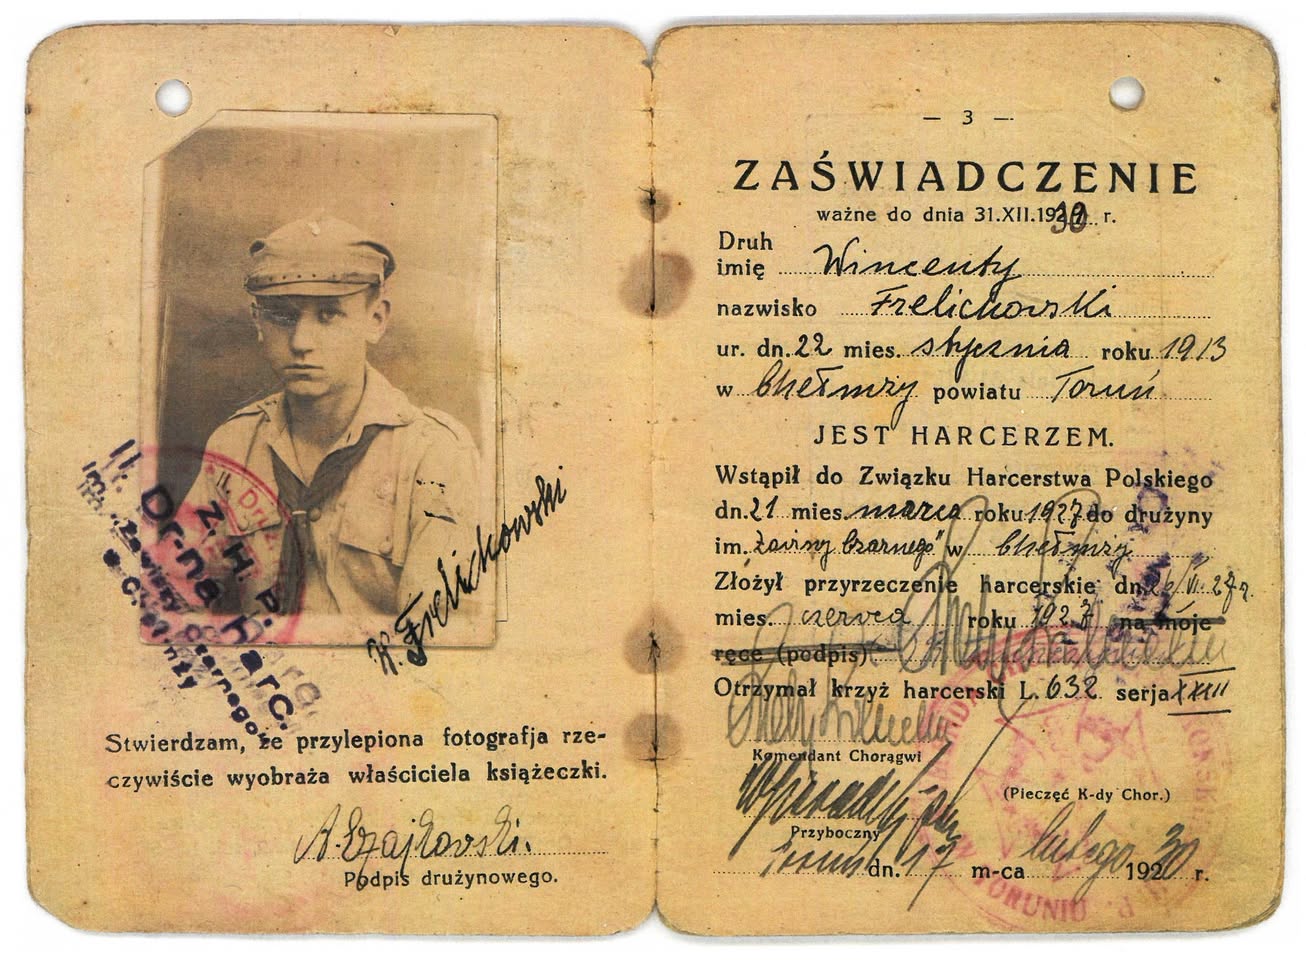 II. Dr-na Harc.
Z. H. P.
im. Zawiszy Czarnego
w Chełmży
W. Frelichowski
Stwierdzam, że przylepiona fotografja rze-
czywiście wyobraża właściciela książeczki.
A. Czajkowski.
Podpis drużynowego.
— 3 —
ZAŚWIADCZENIE
ważne do dnia 31.XII.1930 r.
Druh
imię Wincenty
nazwisko Frelichowski
ur. dn. 22 mies. stycznia roku 1913
w Chełmży powiatu Toruń
JEST HARCERZEM.
Wstąpił do Związku Harcerstwa Polskiego
dn. 21 mies. marca roku 1927 do drużyny
im. Zawiszy Czarnego" w Chełmży
Złożył przyrzeczenie harcerskie dn. 27 r.
mies. czerwca roku 1927 na moje
ręce (podpis)
Otrzymał krzyż harcerski L. 632 serja XXIII
Komendant Chorągwi
(Pieczęć K-dy Chor.)
Przyboczny
Toruń dn. 17 m-ca lutego 1930 r.
W TORUNIU